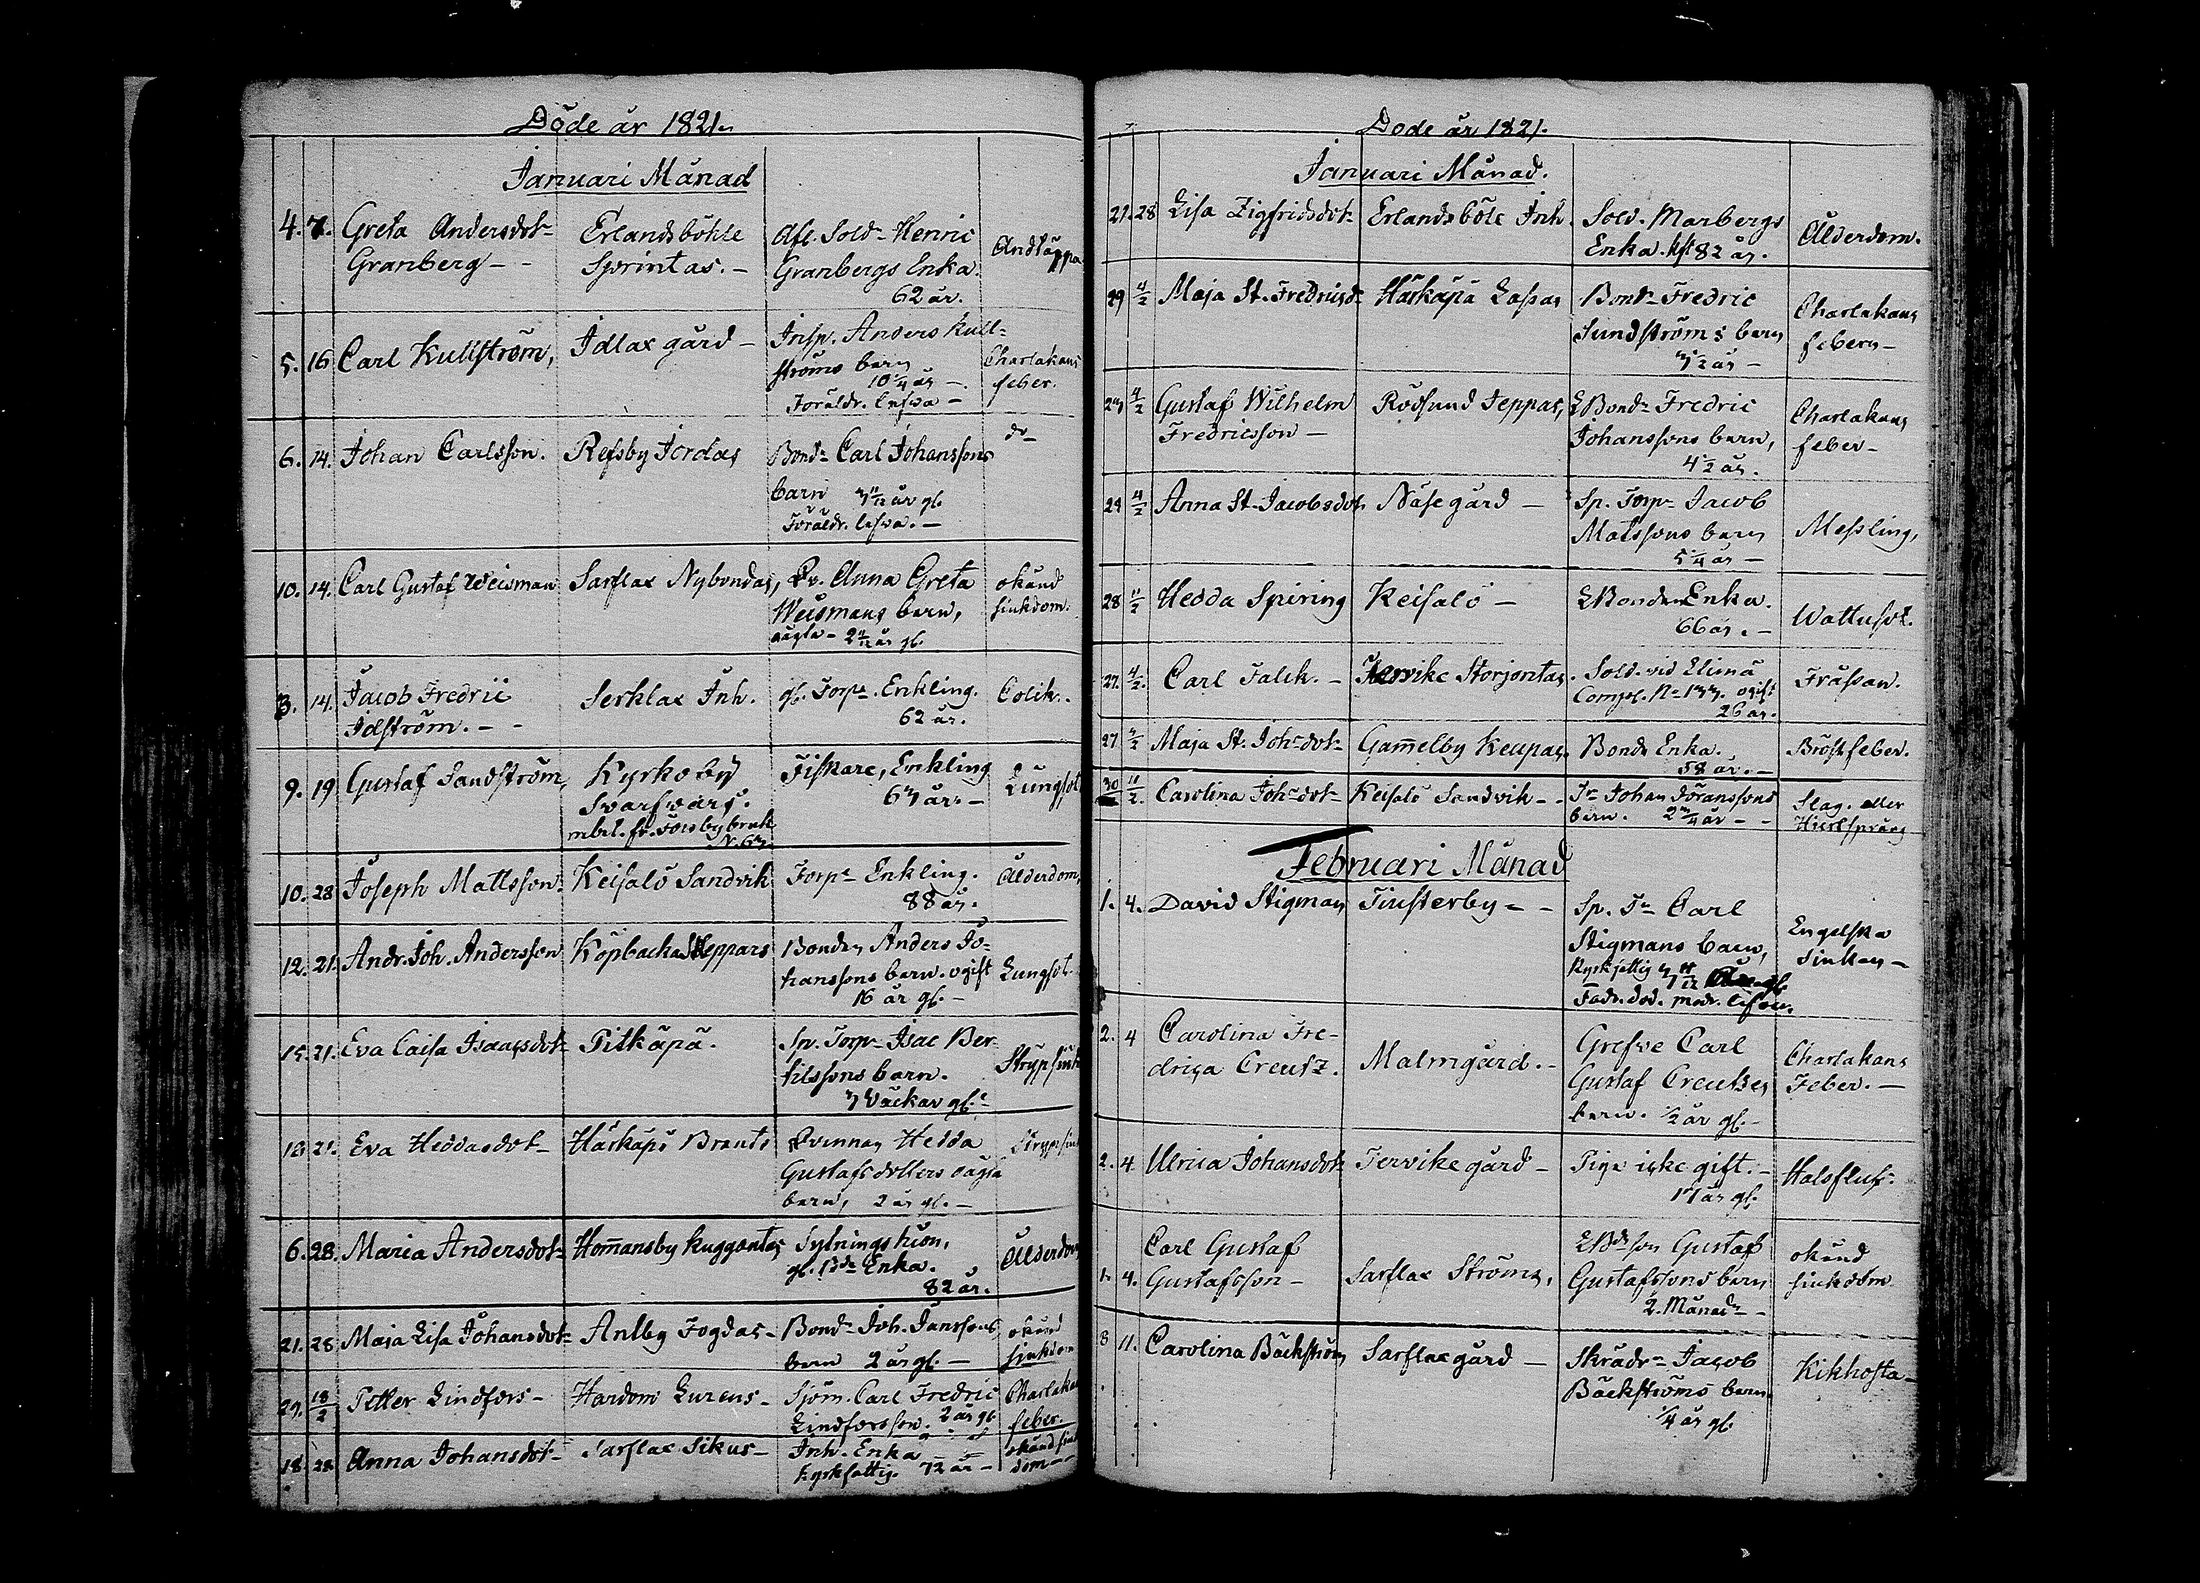 Döde år 1821.
Januari Månad
4. 7. Greta Andersdot- Erlandsböhle Afl. Sold- Henric Andtäppa
Granberg - - Sprintas. - Granbergs Enka.
62 år.
5. 16 Carl Kullström, Idlax gård - Insp. Anders Kull-
ströms barn Charlakans
10 1/4 år - feber.
Föräldr. lefwa -
6. 14. Johan Carlsson. Refsby Jordas Bond- Carl Johanssons do-
barn 7 11/12 år gl.
Föräldr. lefwa. -
10. 14. Carl Gustaf Weisman Sarflax Nybondas, Qv. Anna Greta okänd
Weismans barn, sjukdom.
oägta - 2 år gl.
3. 14. Jacob Fredric Serklax Inh. gl. Torp- Enkling. Colik.
Idström. - - 62 år.
9. 19 Gustaf Sandström, Kyrkoby Fiskare, Enkling Lungsot
Svarfvars. 67 år. -
fr. Forsby bruk
N. 67
10. 28 Joseph Mattsson- Keisalö Sandvik Torp- Enkling. Ålderdom,
88 år.
12. 21. Andr. Joh. Andersson Köpbacka Skeppars Bonden Anders Jo-
hanssons barn. ogift Lungsot.
16 år gl. -
15. 21. Eva Caisa Isaacsdot- Pitkäpä. Sp. Torp- Isac Ber-
tilssons barn. Strypsjuk
7 Vickor gl.
18 21. Eva Heddasdot- Härkäpä Brants Qvinnan Hedda Strypsjuk
Gustafsdotters oägta
barn, 2 år gl. -
6. 28. Maria Andersdot- Hommansby Kuggontas Sytningshion, Ålderdom
gl. Bds Enka.
82 år.
21. 28 Maja Lisa Johansdot- Anlby Fogdas- Bond- Joh. Janssons okänd
barn 2 år gl. - sjukdom
29. 18/2 Petter Lindfors- Hardom Lurens- Sjöm. Carl Fredric Charlakan
Lindforsson. 2 år gl feber
18. 28. Anna Johansdot- Sarflax Sikus- Inh. Enka okänd sjuk
Kyrkfattig. 72 år - dom -
Döde år 1821.
Januari Månad.
21. 28 Lisa Zigfridsdot- Erlandsböle Inh. Sold. Marbergs Ålderdom.
Enka. 82 år.
29 4/2 Maja St. Fredricsd- Härkäpä Lassas Bond- Fredric Charlakans
Sundströms barn febern -
7 1/2 år -
4/2 Gustaf Wilhelm Rödsund Jeppas, LBond- Fredric Charlakans
Fredricsson - Johanssons barn, feber -
4 1/2 år.
29 4/2 Anna St. Jacobsdot. Näse gård - Sp. Torp- Jacob
Matssons barn Messling,
5 1/4 år -
28 11/2 Hedda Spiring Keisalö - LBonden Enka. Wattusot.
66 år. -
27. 4/2. Carl Falck. - Tervike Storjontas. Sold. vid Elimä Frässan.
Comp. No 177. ogift
26 år.
27 4/2 Maja St. Johsdot- Gammelby Keupas, Bonds Enka. Bröstfeber.
58 år. -
30 11/2. Carolina Johsdot- Keisalö Sandvik - - T- Johan Göranssons Slag. eller
barn. 2 3/4 år - - Hiertsprång
Februari Månad
1. 4. David Stigman Tiusterby - - Sp. T- Carl Engelska
Stigmans barn, Siukan -
Kyrkfattig 7
Fadr. död. modr. lefver.
2. 4 Carolina Fre- Malmgård. - Grefve Carl Charlakans
drica Creutz. Gustaf Creutzes Feber. -
barn. 1/2 år gl. -
2. 4 Ulrica Johansdot- Tervike gård - Piga icke gift. - Halsfluss.
17 år gl.
1. 4. Carl Gustaf Sarflax Ströms, LBdeson Gustaf okänd
Gustafsson - Gustafssons barn sjukdom
2. Månad- -
8 11. Carolina Bäckström Sarflax gård - Skrädr- Jacob Kikhosta -
Bäckströms barn.
1/4 år gl.